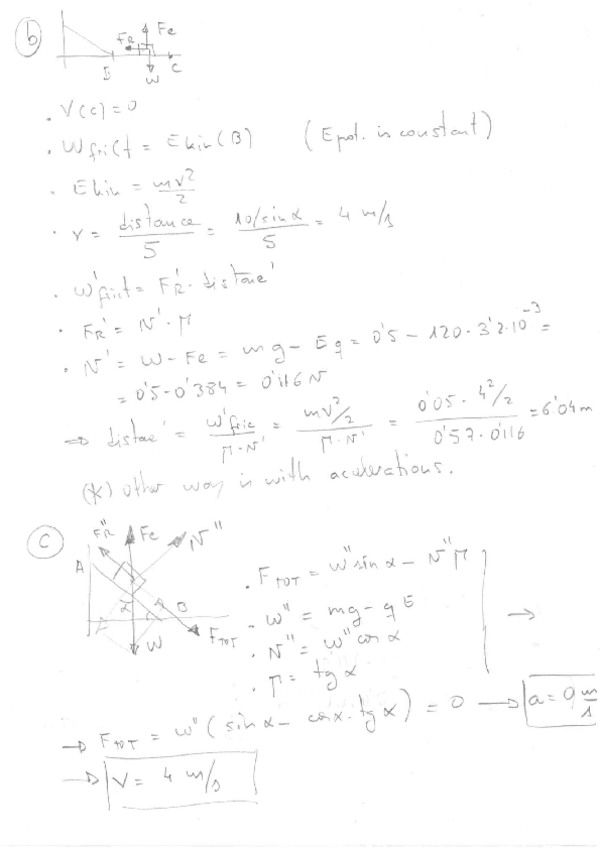 b)
FR Fe
B W C
. V(c) = 0
. Wfrict = Ekin (B) (Epot. is constant)
. Ekin = mv²/2
. v = distance/5 = (10/sin α)/5 = 4 m/s
. W'frict = FR' · distance'
. FR' = N' · μ
. N' = W - Fe = mg - Eq = 0'5 - 120 · 3'2·10⁻³ =
= 0'5 - 0'384 = 0'116 N
⇒ distance' = W'fric/μ·N' = (mv²/2)/μ·N' = (0'05 · 4²/2)/(0'57 · 0'116) = 6'04 m
(*) other way is with acelerations.
c)
FR'' Fe N''
A α B
W FTOT
. FTOT = W'' sin α - N'' μ
. W'' = mg - qE
. N'' = W'' cos α
. μ = tg α
→ FTOT = W'' (sin α - cos α · tg α) = 0 → a = 0 m/s
→ V = 4 m/s